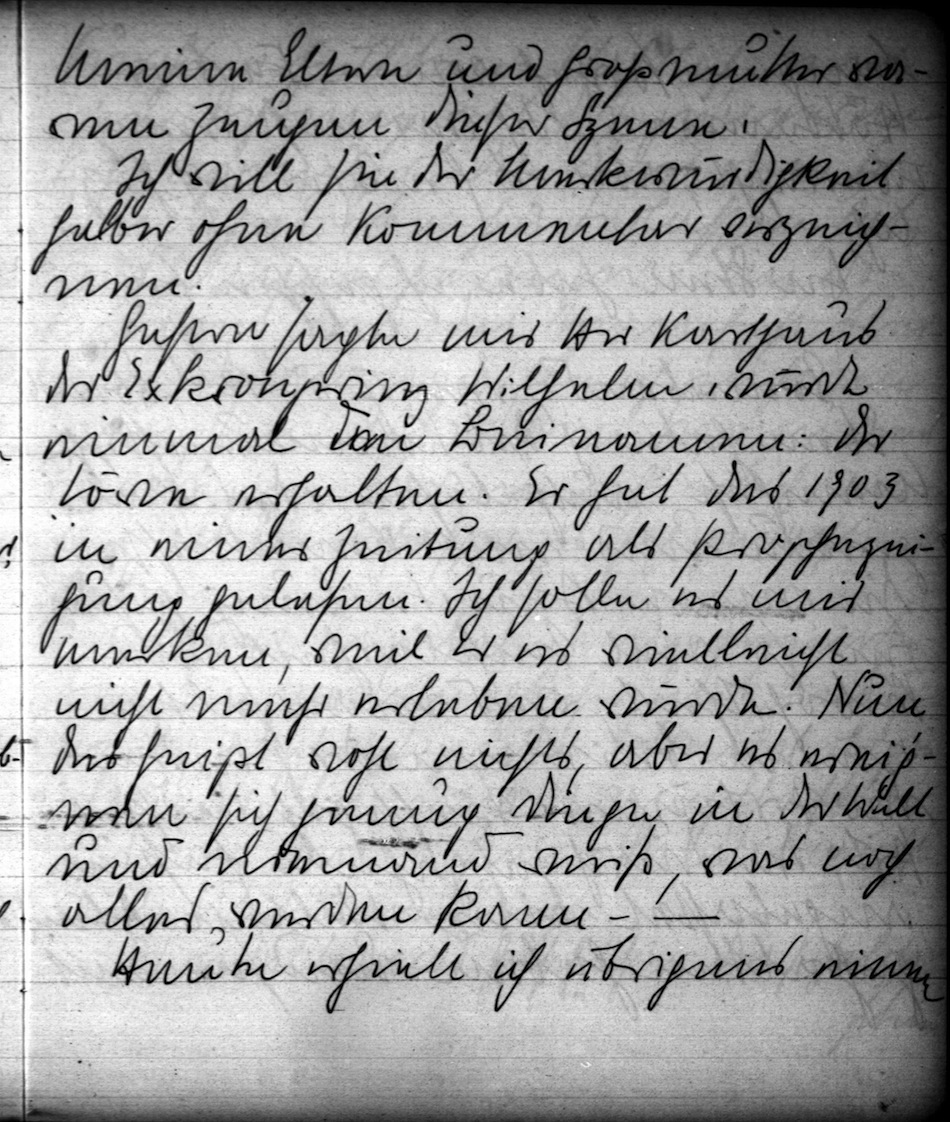 Meine Eltern und Großmutter wa-
ren Zeugen dieser Szene.
Ich will sie der Merkwürdigkeit
halber ohne Kommentar verzeich-
nen.
Gestern sagte mir Herr Karthaus
der Exkronprinz Wilhelm, würde
einmal den Beinamen: der
Löwe erhalten. Er hat das 1903
in einer Zeitung als Prophezei-
hung gelesen. Ich solle es mir
merken, weil er es vielleicht
nicht mehr erleben würde. Nun
das heißt wohl nichts, aber es ereig-
nen sich genug Dinge in der Welt
und niemand weiß, was noch
alles, werden kann - —
Heute erhielt ich übrigens einen